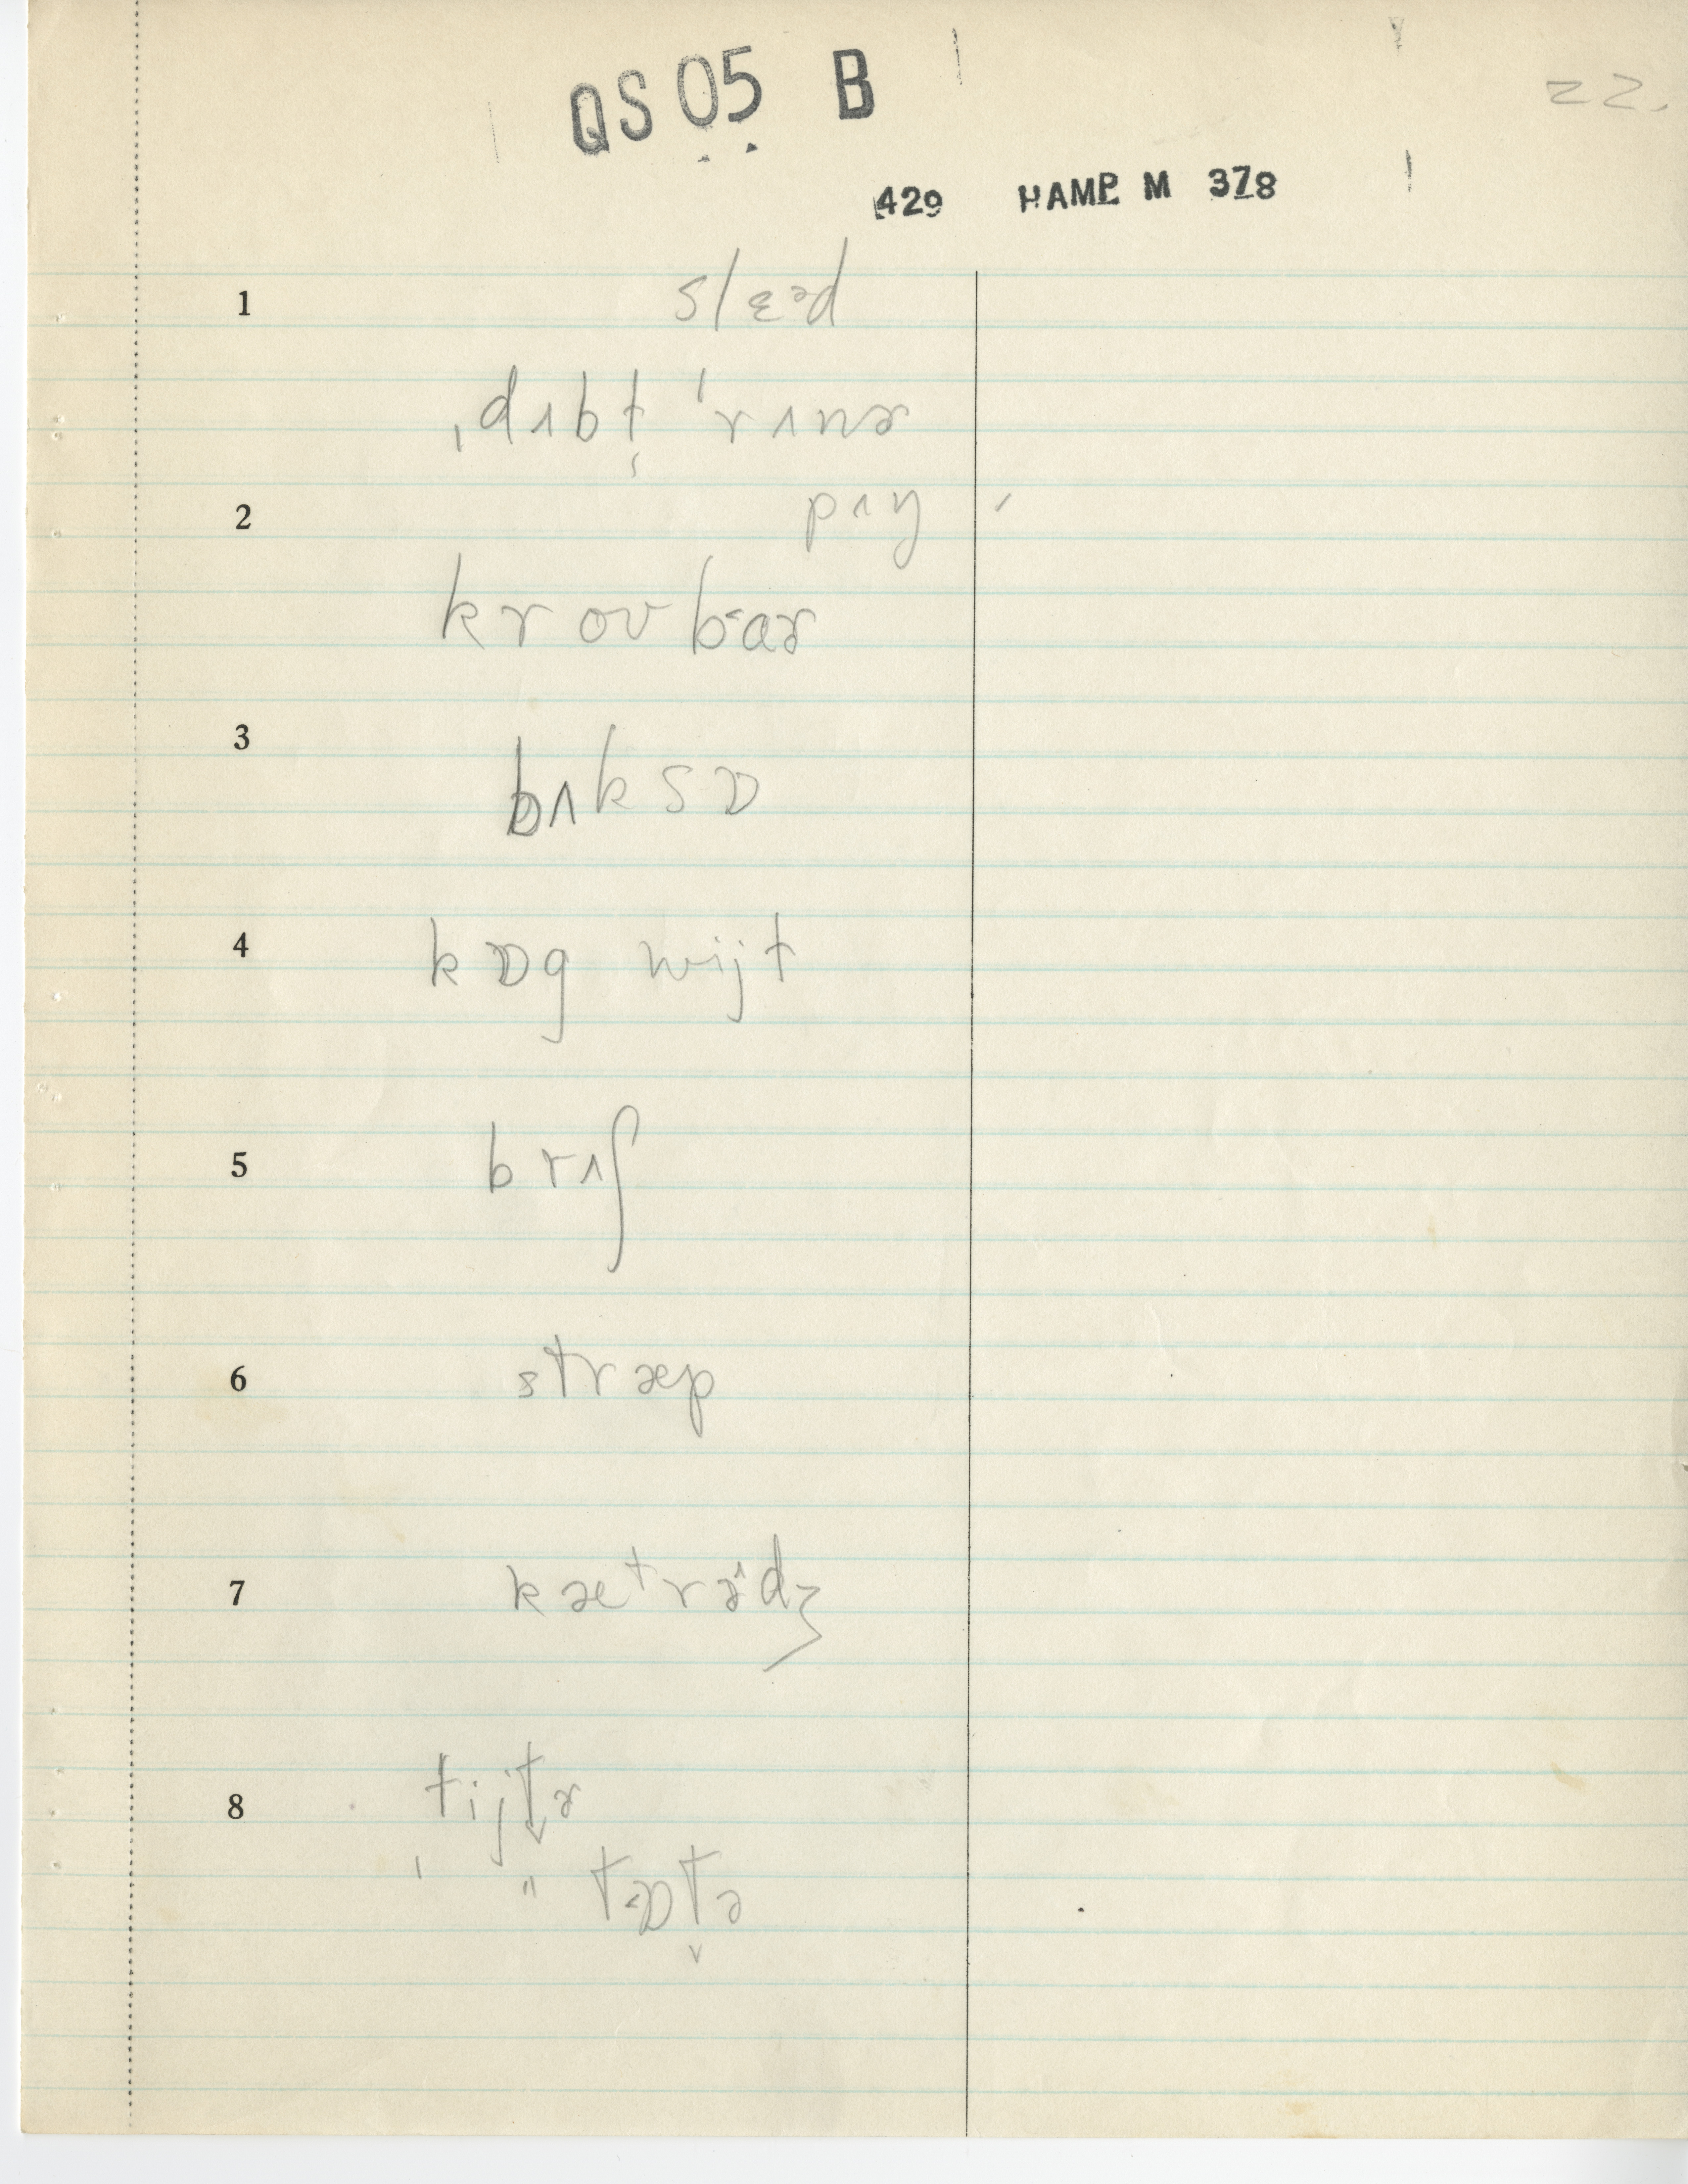 QS 05 B
22.
429 HAMP. M 378
1 slɛəd
ˌdʌbt̬ ˈrʌnɚ
2 pʌŋ
krovbɑɚ
3 bʌksɒ
4 kɒg wijt
5 brʌʃ
6 stræp
7 kætrədʒ
8 tijt̬ɚ
" tɒt̬ə